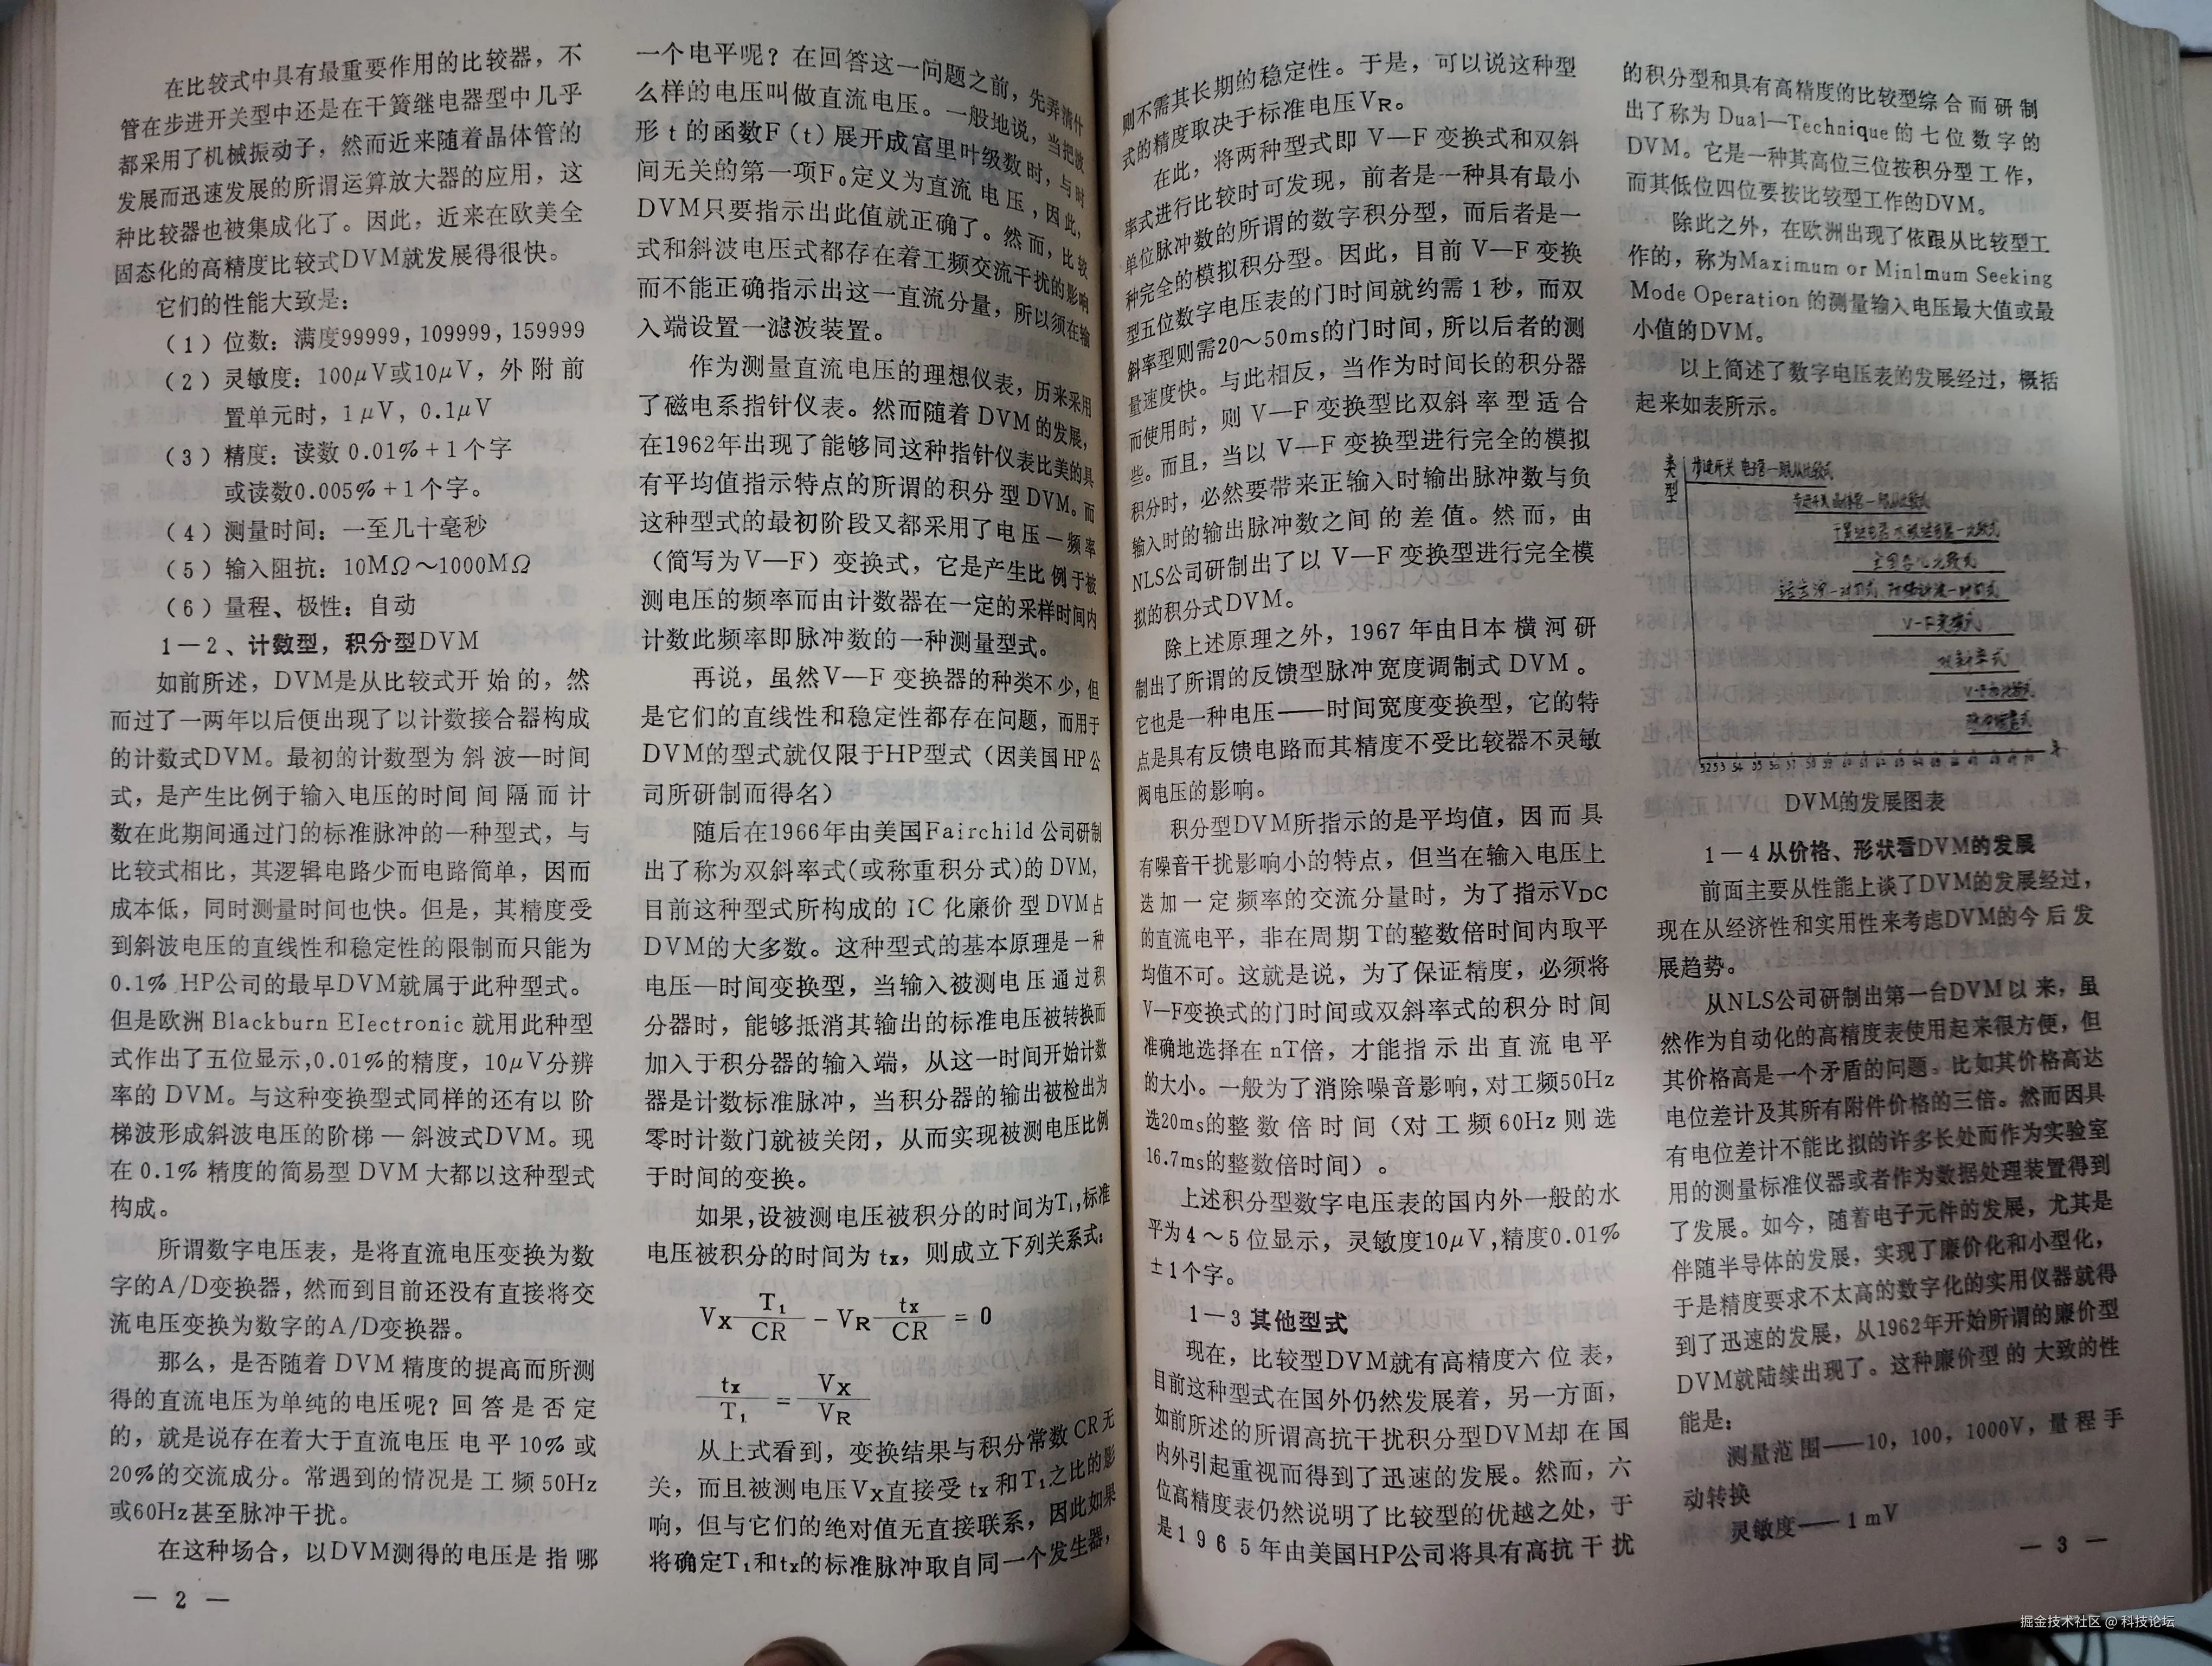 在比较式中具有最重要作用的比较器，不
管在步进开关型中还是在干簧继电器型中几乎
都采用了机械振动子，然而近来随着晶体管的
发展而迅速发展的所谓运算放大器的应用，这
种比较器也被集成化了。因此，近来在欧美全
固态化的高精度比较式DVM就发展得很快。
它们的性能大致是：
（1）位数：满度99999，109999，159999
（2）灵敏度：100μV或10μV，外附前
置单元时，1μV，0.1μV
（3）精度：读数 0.01%＋1个字
或读数0.005%＋1个字。
（4）测量时间：一至几十毫秒
（5）输入阻抗：10MΩ～1000MΩ
（6）量程、极性：自动
1－2、计数型，积分型DVM
如前所述，DVM是从比较式开始的，然
而过了一两年以后便出现了以计数接合器构成
的计数式DVM。最初的计数型为斜波—时间
式，是产生比例于输入电压的时间间隔而计
数在此期间通过门的标准脉冲的一种型式，与
比较式相比，其逻辑电路少而电路简单，因而
成本低，同时测量时间也快。但是，其精度受
到斜波电压的直线性和稳定性的限制而只能为
0.1% HP公司的最早DVM就属于此种型式。
但是欧洲 Blackburn EIectronic 就用此种型
式作出了五位显示,0.01%的精度，10μV分辨
率的 DVM。与这种变换型式同样的还有以阶
梯波形成斜波电压的阶梯—斜波式DVM。现
在 0.1% 精度的简易型 DVM 大都以这种型式
构成。
所谓数字电压表，是将直流电压变换为数
字的A/D变换器，然而到目前还没有直接将交
流电压变换为数字的A/D变换器。
那么，是否随着 DVM 精度的提高而所测
得的直流电压为单纯的电压呢？回答是否定
的，就是说存在着大于直流电压电平10%或
20%的交流成分。常遇到的情况是工频50Hz
或60Hz甚至脉冲干扰。
在这种场合，以DVM测得的电压是指哪
— 2 —
一个电平呢？在回答这一问题之前，先弄清什
么样的电压叫做直流电压。一般地说，当把波
形 t 的函数F（t）展开成富里叶级数时，与时
间无关的第一项F₀定义为直流电压，因此，
DVM只要指示出此值就正确了。然而，比较
式和斜波电压式都存在着工频交流干扰的影响
而不能正确指示出这一直流分量，所以须在输
入端设置一滤波装置。
作为测量直流电压的理想仪表，历来采用
了磁电系指针仪表。然而随着 DVM 的发展，
在1962年出现了能够同这种指针仪表比美的具
有平均值指示特点的所谓的积分型 DVM。而
这种型式的最初阶段又都采用了电压—频率
（简写为V—F）变换式，它是产生比例于被
测电压的频率而由计数器在一定的采样时间内
计数此频率即脉冲数的一种测量型式。
再说，虽然V—F 变换器的种类不少，但
是它们的直线性和稳定性都存在问题，而用于
DVM的型式就仅限于HP型式（因美国HP公
司所研制而得名）
随后在1966年由美国Fairchild 公司研制
出了称为双斜率式（或称重积分式）的 DVM，
目前这种型式所构成的 IC 化廉价型DVM占
DVM的大多数。这种型式的基本原理是一种
电压—时间变换型，当输入被测电压通过积
分器时，能够抵消其输出的标准电压被转换而
加入于积分器的输入端，从这一时间开始计数
器是计数标准脉冲，当积分器的输出被检出为
零时计数门就被关闭，从而实现被测电压比例
于时间的变换。
如果，设被测电压被积分的时间为T₁，标准
电压被积分的时间为 tx，则成立下列关系式：
Vx T₁/CR － VR tx/CR ＝ 0
tx/T₁ ＝ Vx/VR
从上式看到，变换结果与积分常数 CR无
关，而且被测电压Vx直接受 tx 和T₁之比的影
响，但与它们的绝对值无直接联系，因此如果
将确定T₁和tx的标准脉冲取自同一个发生器，
则不需其长期的稳定性。于是，可以说这种型
式的精度取决于标准电压VR。
在此，将两种型式即 V—F 变换式和双斜
率式进行比较时可发现，前者是一种具有最小
单位脉冲数的所谓的数字积分型，而后者是一
种完全的模拟积分型。因此，目前 V—F 变换
型五位数字电压表的门时间就约需1秒，而双
斜率型则需20～50ms的门时间，所以后者的测
量速度快。与此相反，当作为时间长的积分器
而使用时，则 V—F 变换型比双斜率型适合
些。而且，当以 V—F 变换型进行完全的模拟
积分时，必然要带来正输入时输出脉冲数与负
输入时的输出脉冲数之间的差值。然而，由
NLS公司研制出了以 V—F 变换型进行完全模
拟的积分式DVM。
除上述原理之外，1967 年由日本横河研
制出了所谓的反馈型脉冲宽度调制式 DVM。
它也是一种电压——时间宽度变换型，它的特
点是具有反馈电路而其精度不受比较器不灵敏
阀电压的影响。
积分型DVM所指示的是平均值，因而具
有噪音干扰影响小的特点，但当在输入电压上
迭加一定频率的交流分量时，为了指示VDC
的直流电平，非在周期T的整数倍时间内取平
均值不可。这就是说，为了保证精度，必须将
V—F变换式的门时间或双斜率式的积分时间
准确地选择在 nT倍，才能指示出直流电平
的大小。一般为了消除噪音影响，对工频50Hz
选20ms的整数倍时间（对工频60Hz则选
16.7ms的整数倍时间）。
上述积分型数字电压表的国内外一般的水
平为4～5位显示，灵敏度10μV,精度0.01%
±1个字。
1－3 其他型式
现在，比较型DVM就有高精度六位表，
目前这种型式在国外仍然发展着，另一方面，
如前所述的所谓高抗干扰积分型DVM却在国
内外引起重视而得到了迅速的发展。然而，六
位高精度表仍然说明了比较型的优越之处，于
是1965年由美国HP公司将具有高抗干扰
的积分型和具有高精度的比较型综合而研制
出了称为 Dual—Technique 的七位数字的
DVM。它是一种其高位三位按积分型工作，
而其低位四位要按比较型工作的DVM。
除此之外，在欧洲出现了依跟从比较型工
作的，称为Maximum or Minlmum Seeking
Mode Operation 的测量输入电压最大值或最
小值的DVM。
以上简述了数字电压表的发展经过，概括
起来如表所示。
类型
步进开关 电子管—跟从比较式
步进开关 晶体管—跟从比较式
全固态化比较式
V-F变换式
双斜率式
DVM的发展图表
1－4 从价格、形状看DVM的发展
前面主要从性能上谈了DVM的发展经过，
现在从经济性和实用性来考虑DVM的今后发
展趋势。
从NLS公司研制出第一台DVM以来，虽
然作为自动化的高精度表使用起来很方便，但
其价格高是一个矛盾的问题。比如其价格高达
电位差计及其所有附件价格的三倍。然而因具
有电位差计不能比拟的许多长处而作为实验室
用的测量标准仪器或者作为数据处理装置得到
了发展。如今，随着电子元件的发展，尤其是
伴随半导体的发展，实现了廉价化和小型化，
于是精度要求不太高的数字化的实用仪器就得
到了迅速的发展，从1962年开始所谓的廉价型
DVM就陆续出现了。这种廉价型的大致的性
能是：
测量范围——10，100，1000V，量程手
动转换
灵敏度——1mV
— 3 —
掘金技术社区 @ 科技论坛